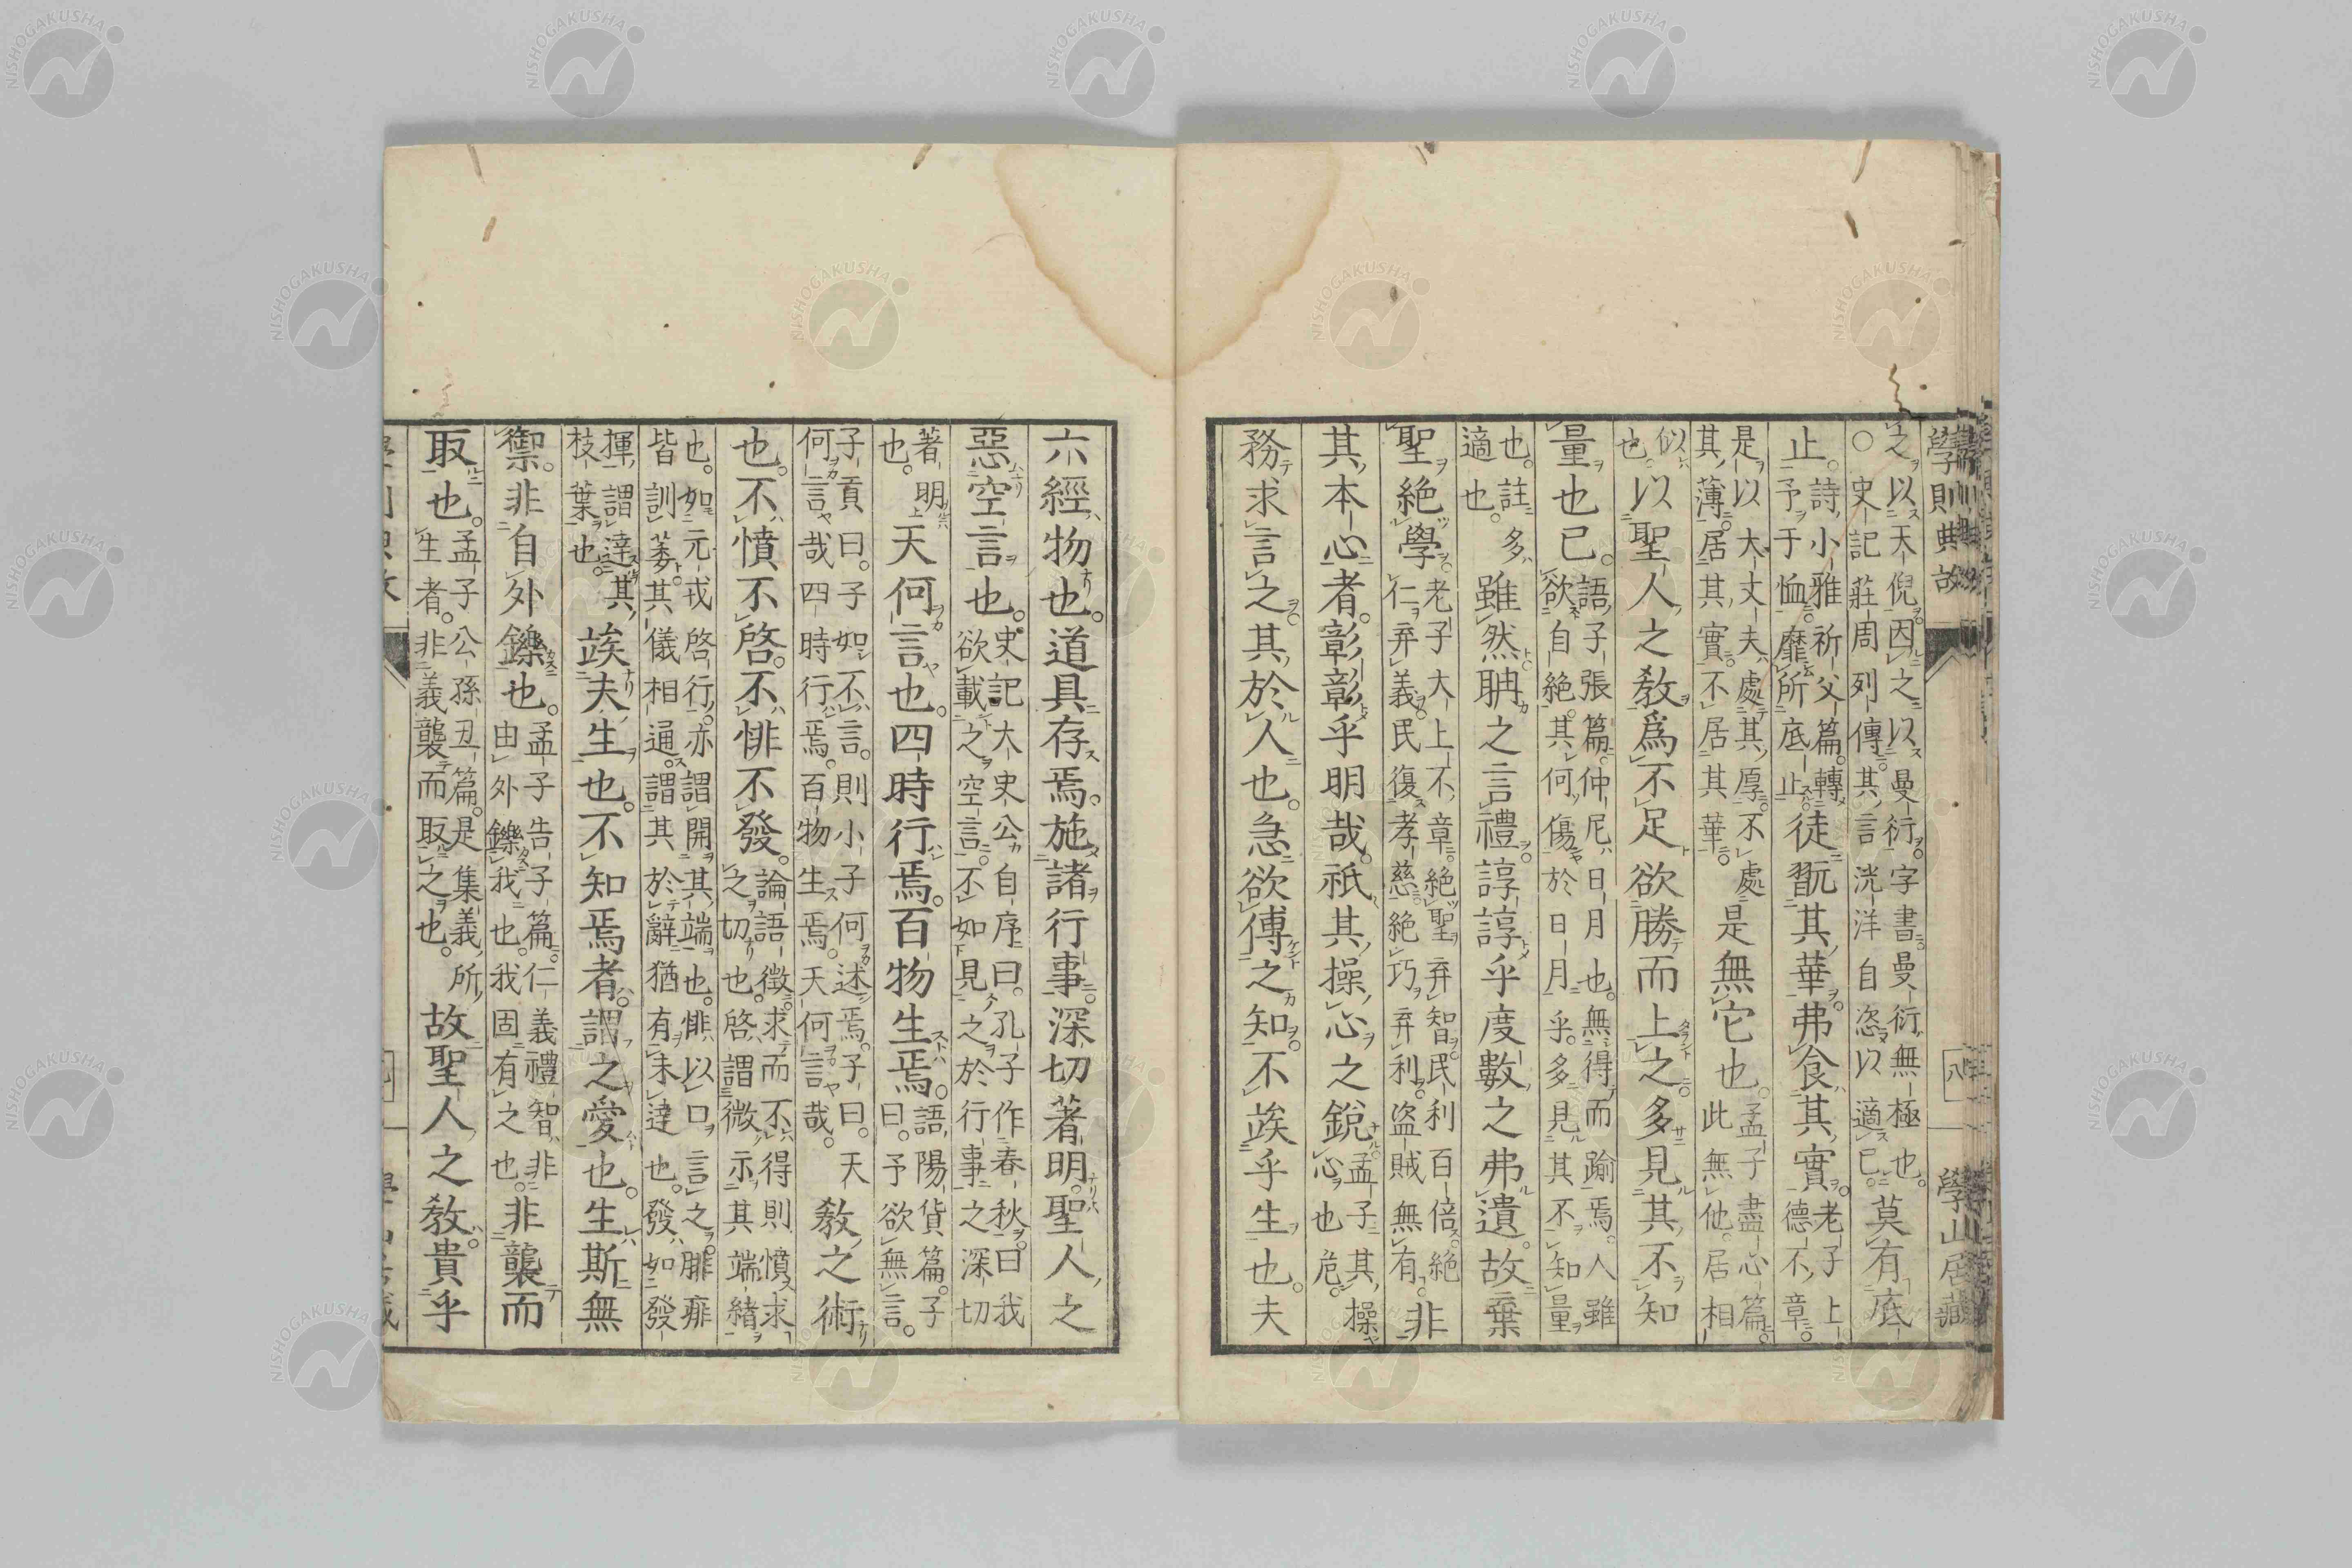 學則典故 八 學山居藏
之以天倪因之以曼衍字書曼衍無極也。
○史記莊周列傳其言洸洋自恣以適已。莫有底
止。詩小雅祈父篇轉予于恤靡所底止徒翫其華弗食其實。老子上德不章
是以大丈夫處其厚不處其薄居其實不居其華是無它也。孟子盡心篇此無他居相
似也以聖人之教爲不足欲勝而上之多見其不知
量也已。語子張篇仲尼日月也無得而踰焉人雖欲自絕其何傷於日月乎多見其不知量
也註多適也。雖然聃之言禮諄諄乎度數之弗遺。故棄
聖絕學。老子大上不章絕聖弃智民利百倍絕仁弃義民復孝慈絕巧弃利盜賊無有非
其本心者。彰彰乎明哉。祇其操心之銳孟子其操心也危
務求言之其於人也。急欲傳之知不竢乎生也。夫
六經物也。道具存焉。施諸行事。深切著明。聖人之
惡空言也。史記大史公自序曰孔子作春秋曰我欲載之空言不如見之於行事之深切
著明也。天何言也。四時行焉。百物生焉。語陽貨篇子曰予欲無言。
子貢曰。子如不言。則小子何述焉。子曰。天何言哉四時行焉。百物生焉。天何言哉。教之術
也。不憤不啓。不悱不發。論語徵求而不得則憤求之切也。啓謂微示其端緒
也。如元戎啓行亦謂開其端也。悱以口言之腓痱皆訓萎其儀相通。謂其於辭猶有未達也。發如發
揮謂達其枝葉也。竢夫生也。不知焉者。謂之愛也。生斯無
禦。非自外鑠也。孟子告子篇仁義禮智非由外鑠我也。我固有之也。非襲而
取也。孟子公孫丑篇。是集義所生者。非義襲而取之也。故聖人之教。貴乎